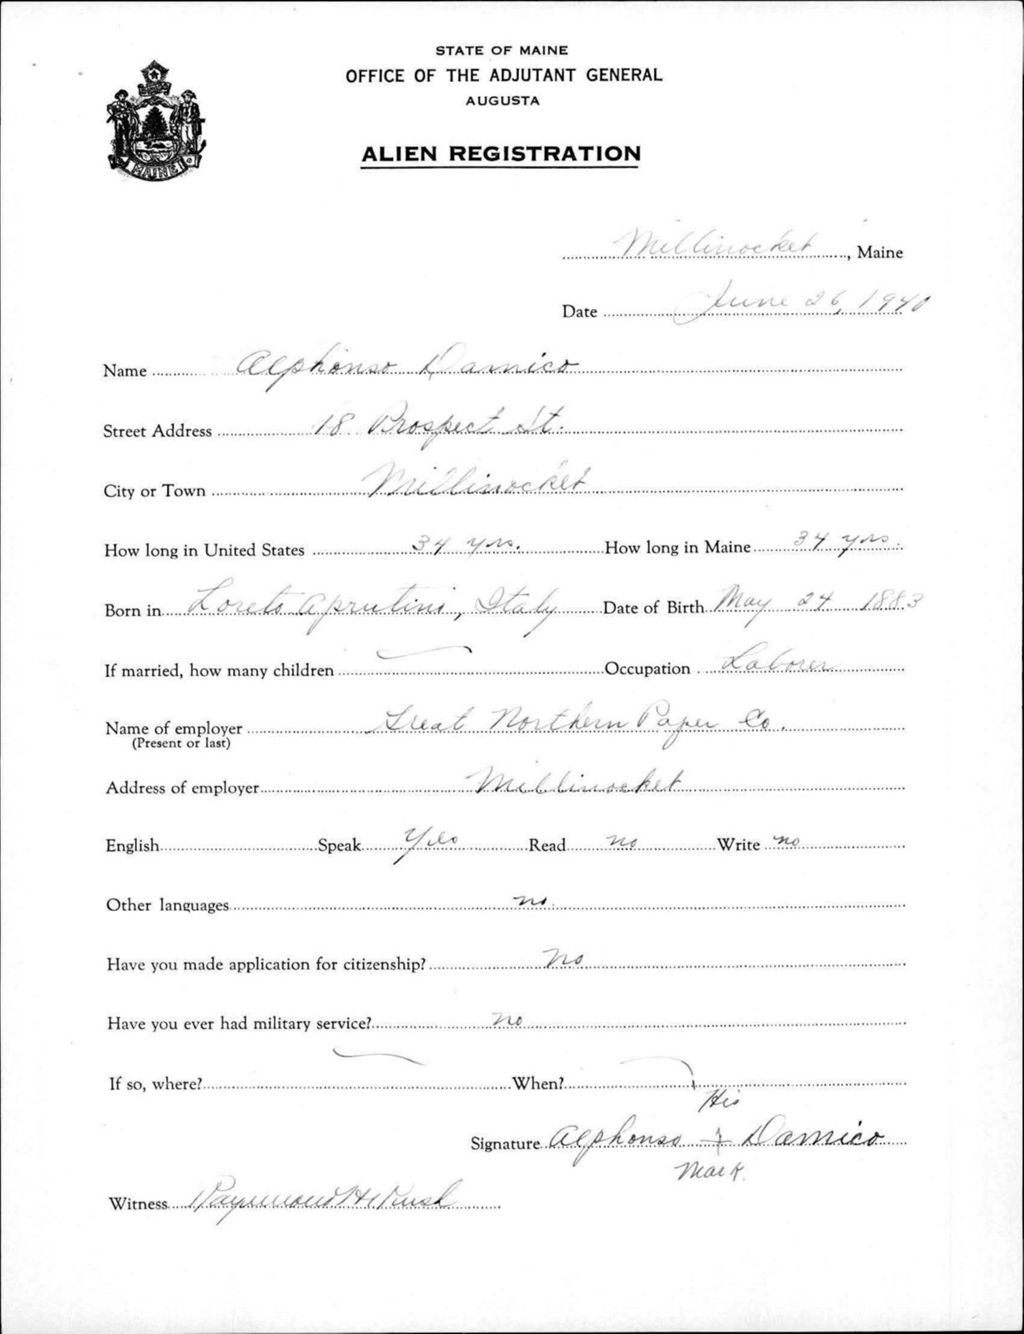 STATE OF MAINE
OFFICE OF THE ADJUTANT GENERAL
AUGUSTA
ALIEN REGISTRATION
MAINE
Millinocket, Maine
Date June 26, 1940
Name Alphonso Damico
Street Address 18 Prospect St.
City or Town Millinocket
How long in United States 34 yrs. How long in Maine 34 yrs.
Born in Loreto Aprutini, Italy Date of Birth May 24 1883
If married, how many children Occupation Laborer
Name of employer Great Northern Paper Co.
(Present or last)
Address of employer Millinocket
English Speak Yes Read no Write no
Other languages no.
Have you made application for citizenship? No
Have you ever had military service? no
If so, where? When?
His
Signature Alphonso + Damico
Mark.
Witness Raymond H. Rush